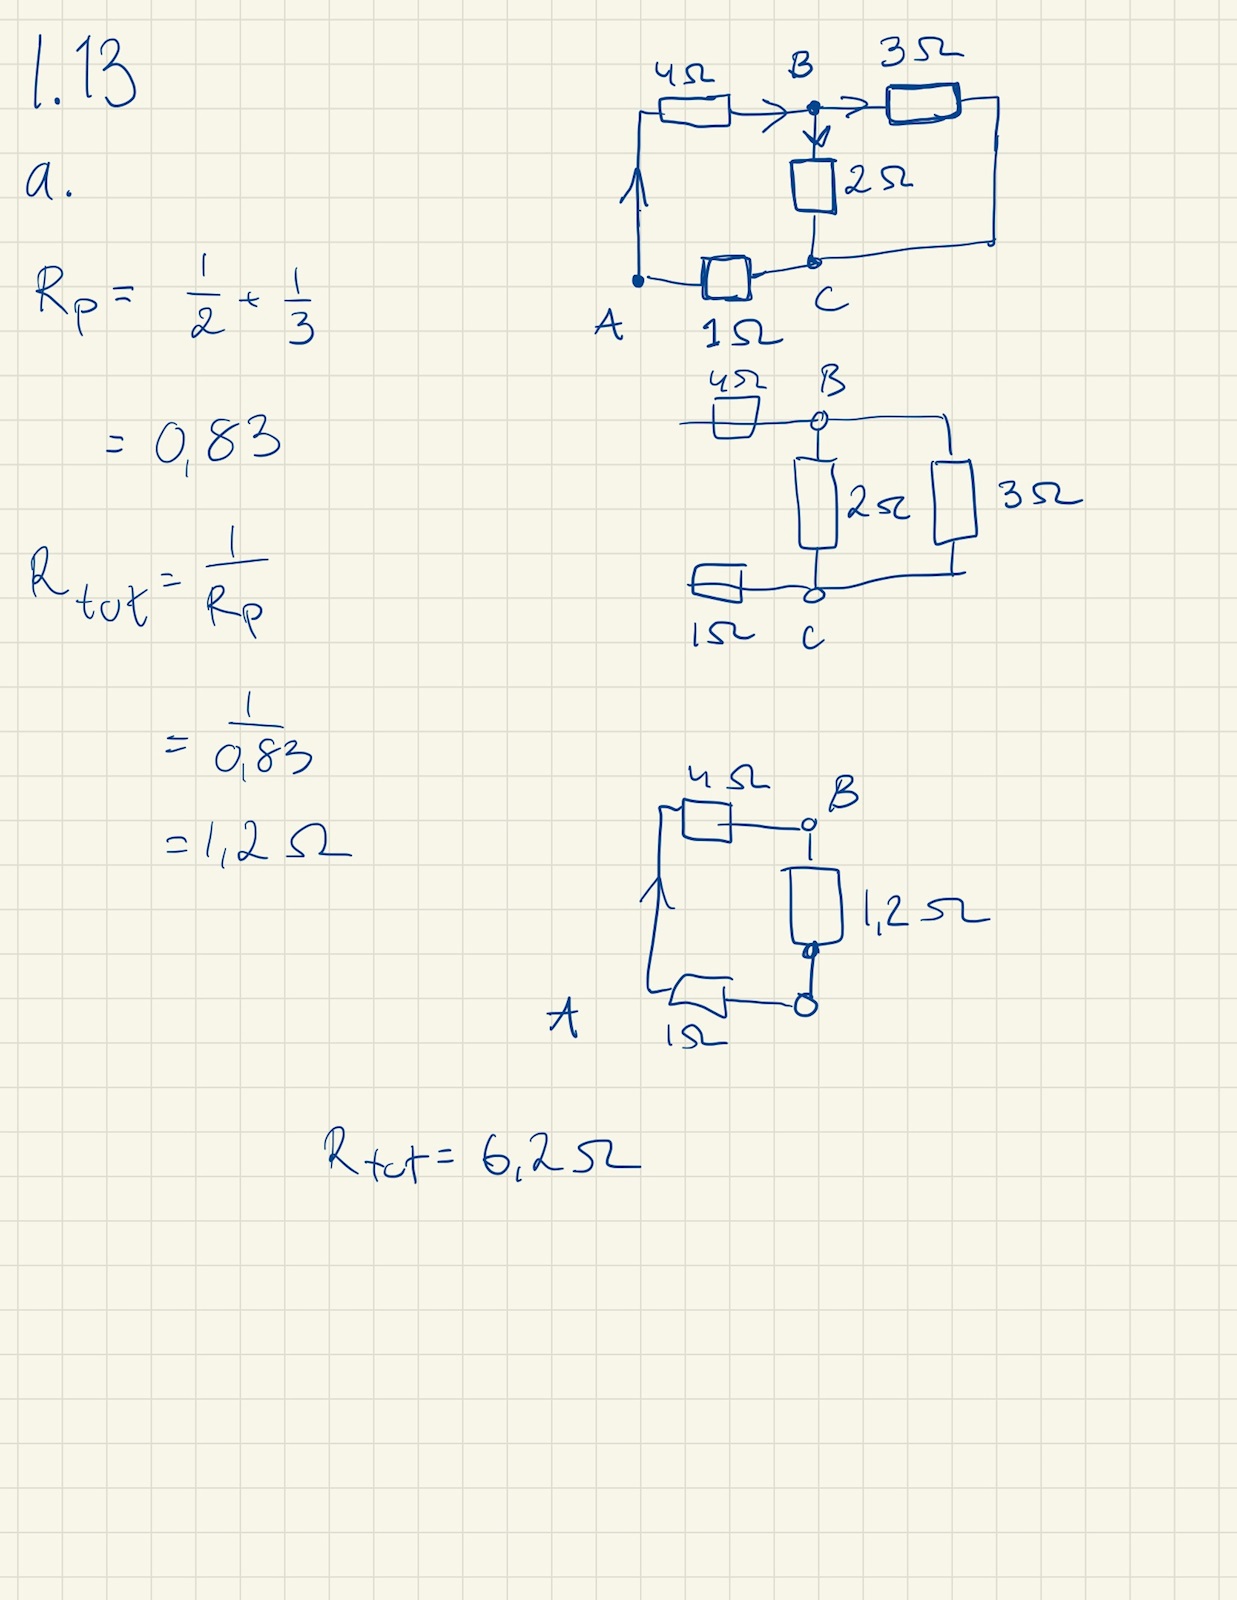 1.13
a.
Rp = 1/2 + 1/3
= 0,83
Rtot = 1/Rp
= 1/0,83
= 1,2 Ω
4Ω B 3Ω
2Ω
A 1Ω C
4Ω B
2Ω 3Ω
1Ω C
4Ω B
1,2Ω
A 1Ω
Rtot = 6,2Ω